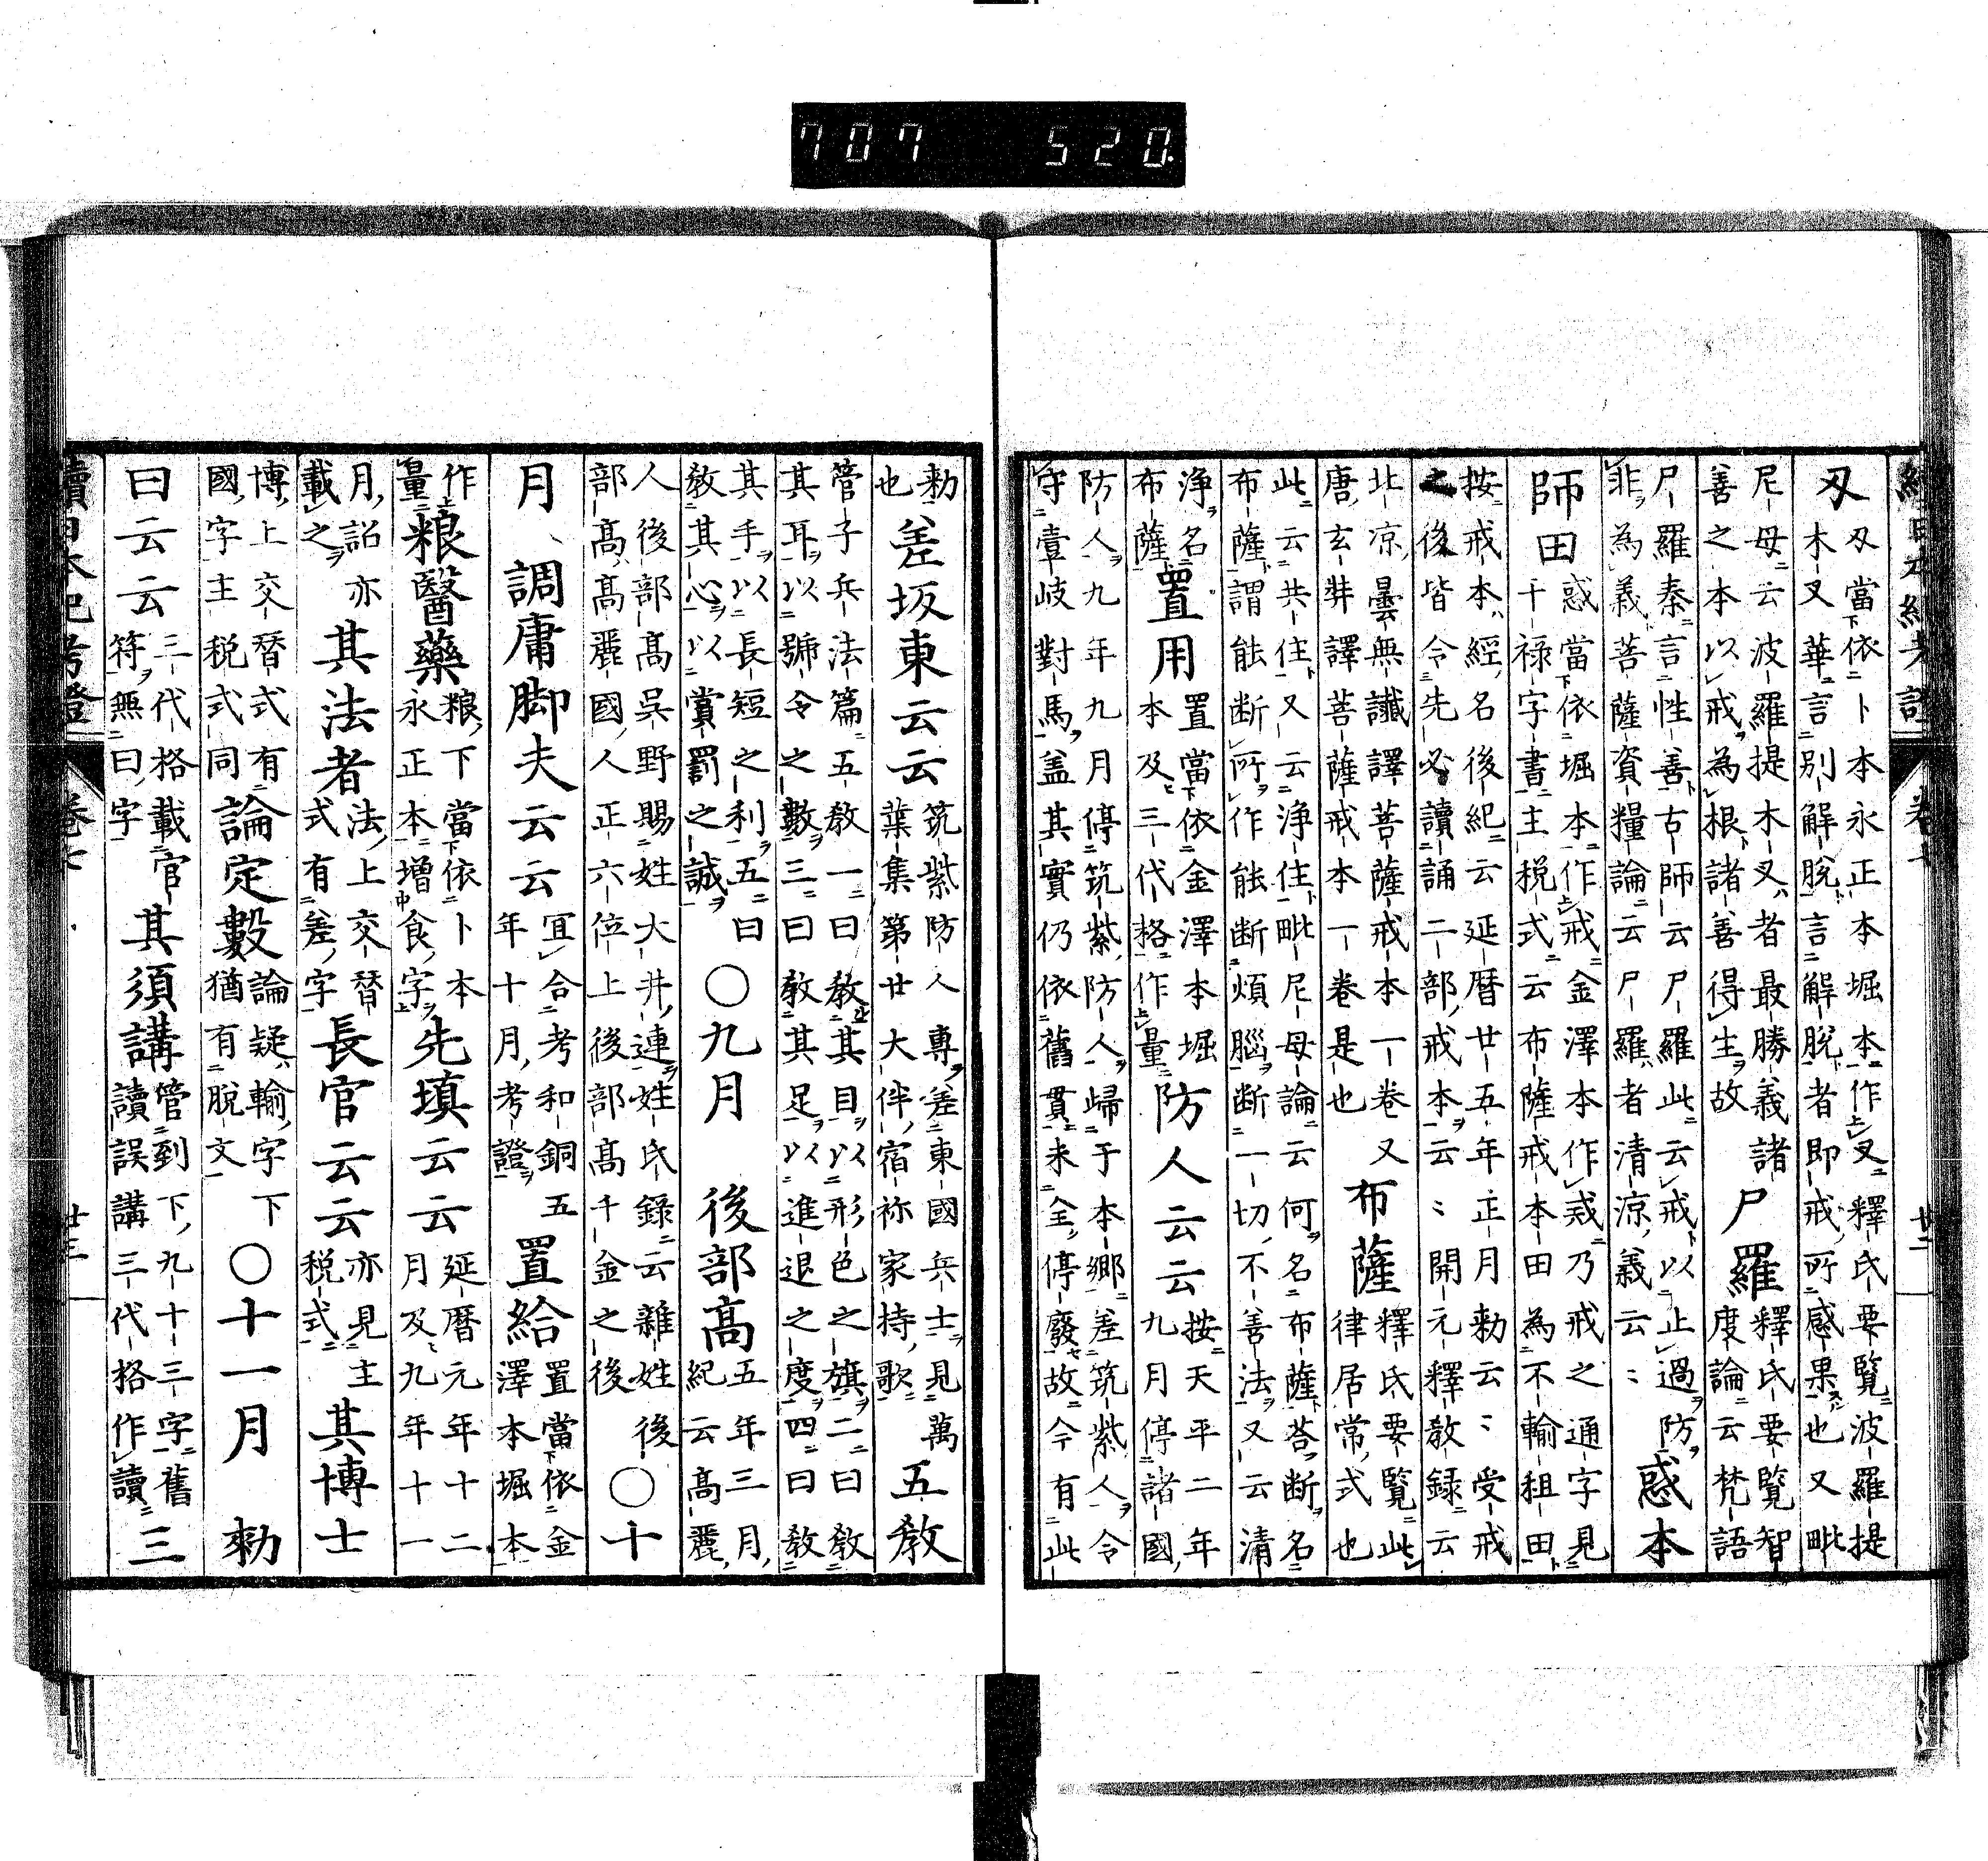 707 520
續日本紀考證 卷七 廿二
刄刄當依卜本永正本堀本作叉釋氏要覽波羅提
木叉華言別解脫言解脫者即戒所感果也又毗
尼母云波羅提木叉者最勝義諸
善之本以戒為根諸善得生故尸羅釋氏要覽智
度論云梵語
尸羅秦言性善古師云尸羅此云戒以止過防
非為義菩薩資糧論云尸羅者清涼義云〻惑本
師田惑當依堀本作戒金澤本作戎乃戒之通字見
干祿字書主税式云布薩戒本田為不輸租田
按戒本經名後紀云延曆廿五年正月勅云〻受戒
之後皆令先必讀誦二部戒本云〻開元釋教録云
北涼曇無讖譯菩薩戒本一卷又
唐玄奘譯菩薩戒本一卷是也布薩釋氏要覽此
律居常式也
此云共住又云淨住毗尼母論云何名布薩荅断名
布薩謂能断所作能断煩腦断一切不善法又云清
淨名
布薩置用置當依金澤本堀
本及三代格作量防人云云按天平二年
九月停諸國
防人九年九月停筑紫防人歸于本鄉差筑紫人令
守壹岐對馬盖其實仍依舊貫未全停廢故今有此
勅
也差坂東云云筑紫防人專差東國兵士見萬
葉集第廿大伴宿祢家持歌五教
管子兵法篇五教一曰教其目以形色之旗二曰教
其耳以號令之數三曰教其足以進退之度四曰教
其手以長短之利五曰
教其心以賞罰之誠〇九月後部高五年三月
紀云高麗
人後部高吳野賜姓大井連姓氏録云雜姓後
部高高麗國人正六位上後部高千金之後〇十
月調庸脚夫云云宜合考和銅五
年十月考證置給置當依金
澤本堀本
作
量粮醫藥粮下當依卜本
永正本增食字先填云云延曆元年十二
月及九年十一
月詔亦
載之其法者法上交替
式有差字長官云云亦見主
税式其博士
博上交替式有
國字主税式同論定數論疑輸字下
猶有脫文〇十一月勅
曰云云三代格載官
符無曰字其須講管到下九十三字舊
讀誤講三代格作讀三
續日本紀考證 卷七 廿三